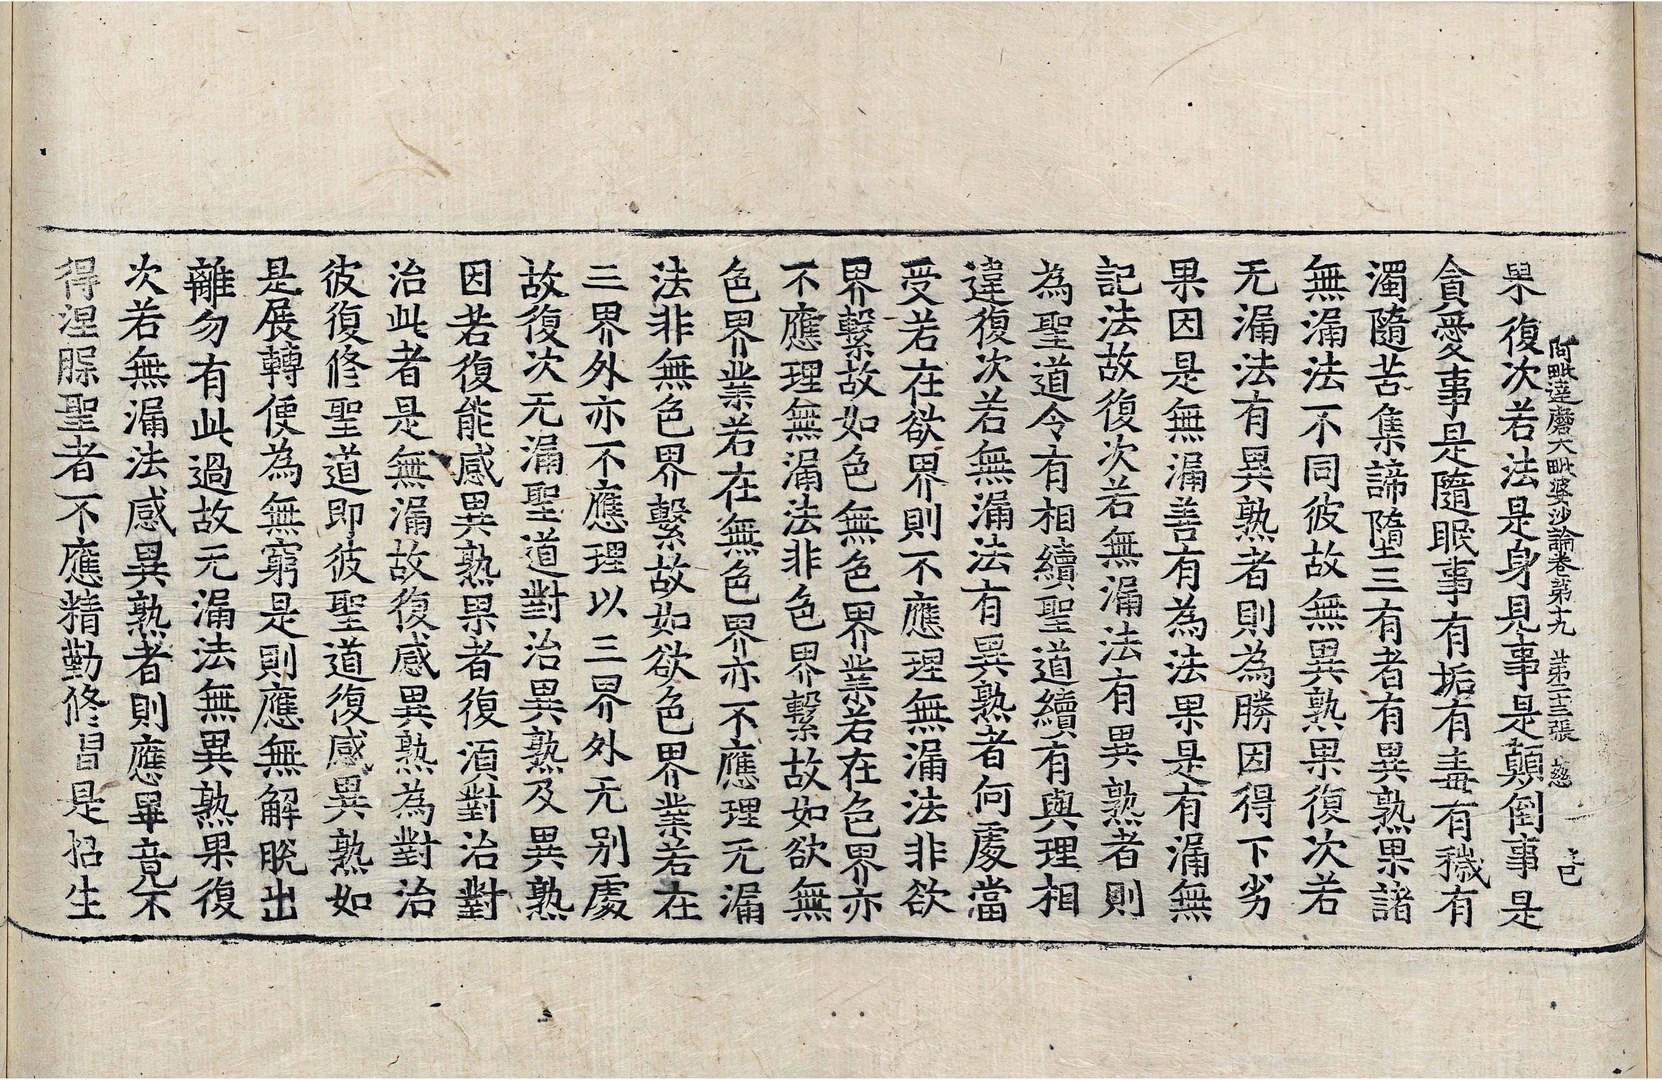 阿毗達磨大毗婆沙論卷第十九 第二三張 慈
果復次若法是身見事是顛倒事是
貪愛事是隨眠事有垢有毒有穢有
濁隨苦集諦隨三有者有異熟果諸
無漏法不同彼故無異熟果復次若
无漏法有異熟者則為勝因得下劣
果因是無漏善有為法果是有漏無
記法故復次若無漏法有異熟者則
為聖道令有相續聖道續有與理相
違復次若無漏法有異熟者何處當
受若在欲界則不應理無漏法非欲
界繫故如色無色界業若在色界亦
不應理無漏法非色界繫故如欲無
色界業若在無色界亦不應理无漏
法非無色界繫故如欲色界業若在
三界外亦不應理以三界外无別處
故復次无漏聖道對治異熟及異熟
因若復能感異熟果者復湏對治對
治此者是無漏故復感異熟為對治
彼復修聖道即彼聖道復感異熟如
是展轉便為無窮是則應無解脫出
離勿有此過故无漏法無異熟果復
次若無漏法感異熟者則應畢竟不
得涅脲聖者不應精勤修習是招生